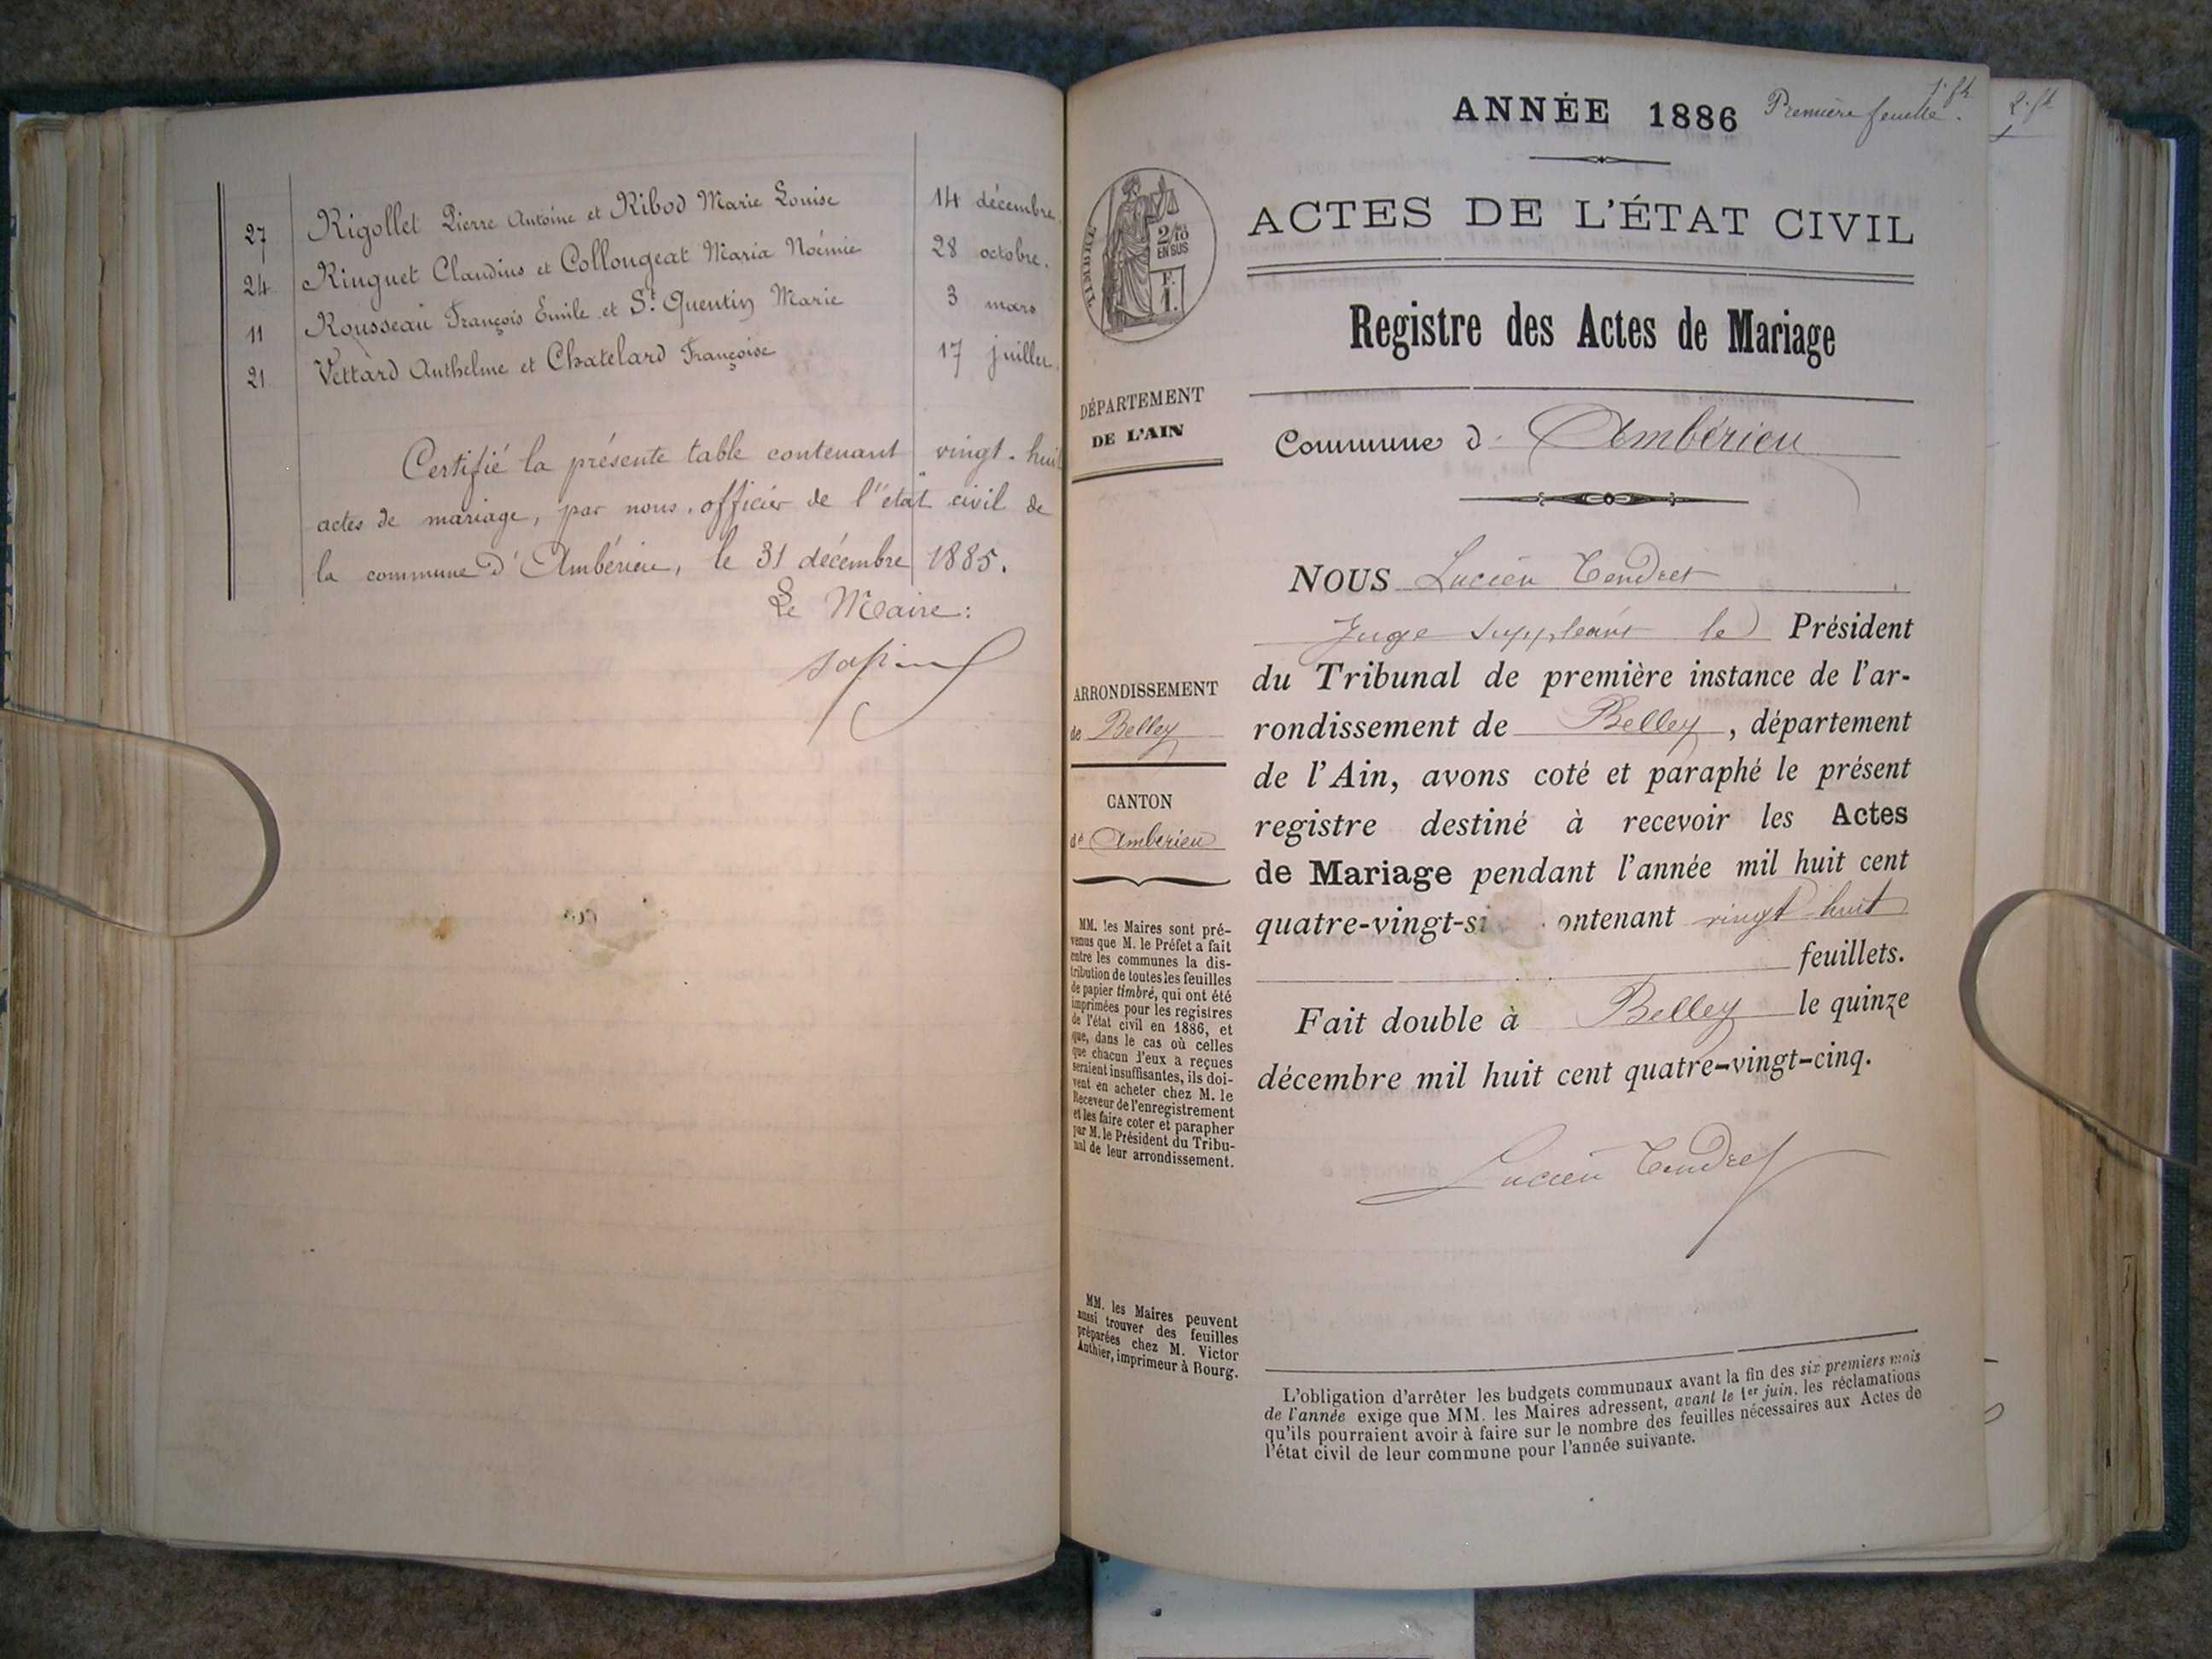 27 Rigollet Pierre Antoine et Ribod Marie Louise 14 décembre.
24 Ringuet Claudius et Collongeat Maria Noémie 28 octobre.
11 Rousseau François Emile et St Quentin Marie 3 mars
21 Vettard Anthelme et Chatelard Françoise 17 juillet.
Certifié la présente table contenant vingt-huit
actes de mariage, par nous, officier de l'état civil de
la commune d'Ambérieu, le 31 décembre 1885.
Le Maire:
ANNÉE 1886 Première feuille. 1. ft
2. ft
ACTES DE L'ÉTAT CIVIL
TIMBRE
2/10
EN SUS
F.
1.
Registre des Actes de Mariage
DÉPARTEMENT
DE L'AIN
Commune d' Ambérieu
NOUS Lucien Tendret
Juge suppléant le Président
du Tribunal de première instance de l'ar-
rondissement de Belley, département
de l'Ain, avons coté et paraphé le présent
registre destiné à recevoir les Actes
de Mariage pendant l'année mil huit cent
quatre-vingt-si ontenant vingt huit
feuillets.
Fait double à Belley le quinze
décembre mil huit cent quatre-vingt-cinq.
Lucien Tendret
ARRONDISSEMENT
de Belley
CANTON
d' Ambérieu
MM. les Maires sont pré-
venus que M. le Préfet a fait
entre les communes la dis-
tribution de toutes les feuilles
de papier timbré, qui ont été
imprimées pour les registres
de l'état civil en 1886, et
que, dans le cas où celles
que chacun d'eux a reçues
seraient insuffisantes, ils doi-
vent en acheter chez M. le
Receveur de l'enregistrement
et les faire coter et parapher
par M. le Président du Tribu-
nal de leur arrondissement.
MM. les Maires peuvent
aussi trouver des feuilles
préparées chez M. Victor
Authier, imprimeur à Bourg.
L'obligation d'arrêter les budgets communaux avant la fin des six premiers mois
de l'année exige que MM. les Maires adressent, avant le 1er juin, les réclamations
qu'ils pourraient avoir à faire sur le nombre des feuilles nécessaires aux Actes de
l'état civil de leur commune pour l'année suivante.